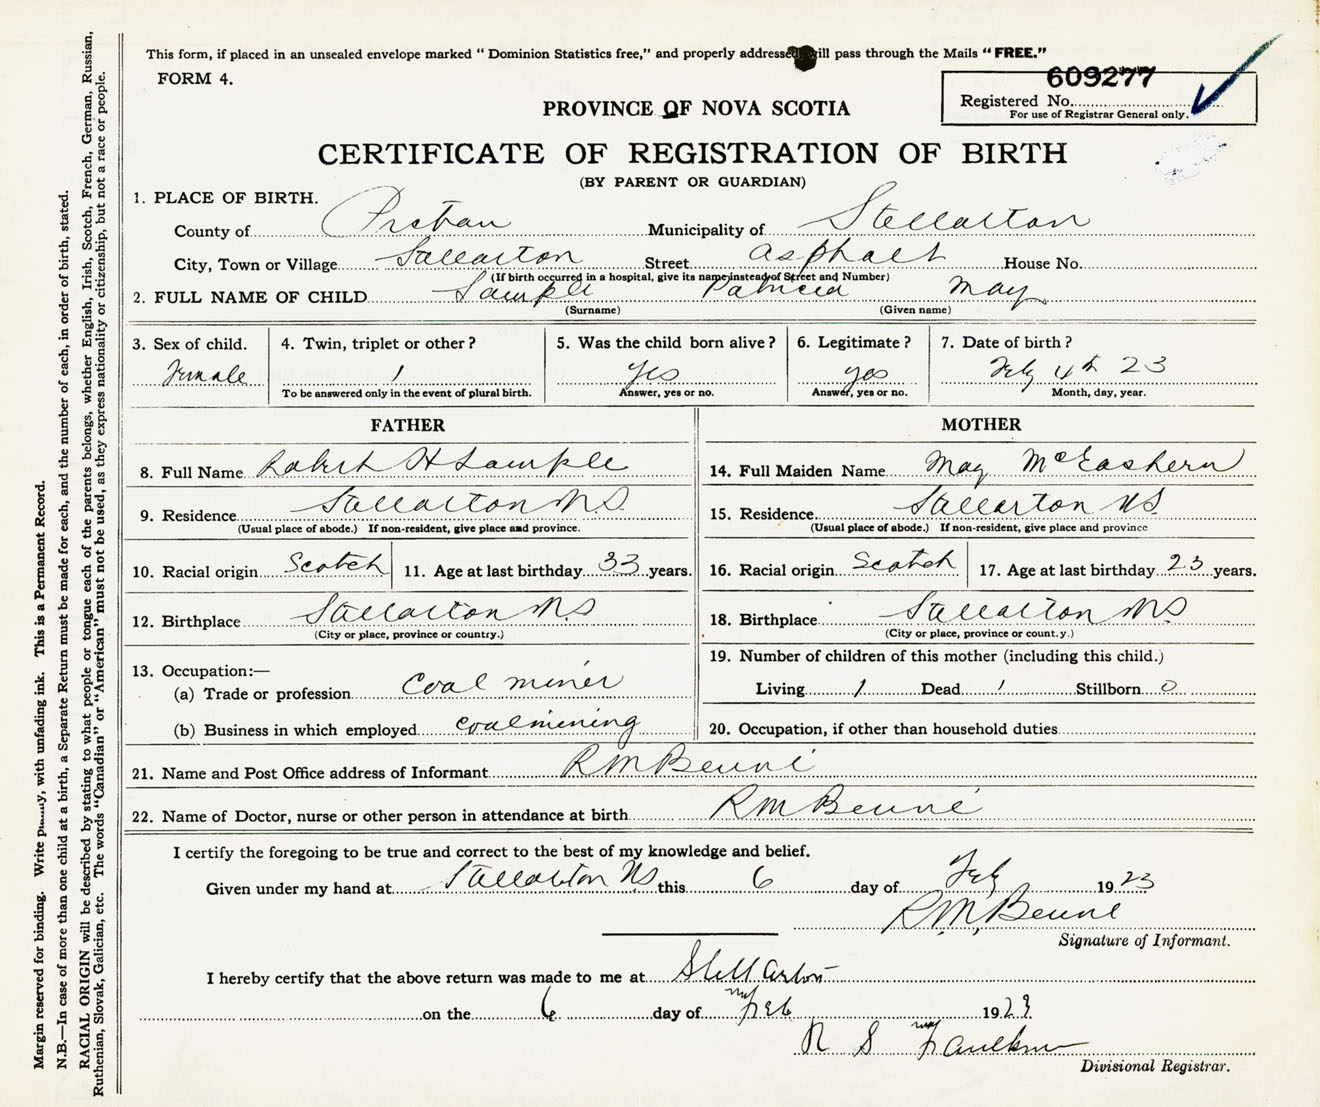 This form, if placed in an unsealed envelope marked " Dominion Statistics free," and properly addressed, will pass through the Mails " FREE."
FORM 4.
609277
Registered No.
For use of Registrar General only.
PROVINCE OF NOVA SCOTIA
CERTIFICATE OF REGISTRATION OF BIRTH
(BY PARENT OR GUARDIAN)
1. PLACE OF BIRTH.
County of Pictou Municipality of Stellarton
City, Town or Village Stellarton Street Asphalt House No.
(If birth occurred in a hospital, give its name instead of Street and Number)
2. FULL NAME OF CHILD Sample Patricia May
(Surname) (Given name)
3. Sex of child. 4. Twin, triplet or other ? 5. Was the child born alive ? 6. Legitimate ? 7. Date of birth ?
Female 1 yes yes Feby 4th 23
To be answered only in the event of plural birth. Answer, yes or no. Answer, yes or no. Month, day, year.
FATHER
8. Full Name Robert H Sample
9. Residence Stellarton N.S.
(Usual place of abode.) If non-resident, give place and province.
10. Racial origin Scotch 11. Age at last birthday 33 years.
12. Birthplace Stellarton N.S
(City or place, province or country.)
13. Occupation:—
(a) Trade or profession Coal miner
(b) Business in which employed coalmining
MOTHER
14. Full Maiden Name May McEachern
15. Residence Stellarton NS.
(Usual place of abode.) If non-resident, give place and province
16. Racial origin Scotch 17. Age at last birthday 23 years.
18. Birthplace Stellarton NS
(City or place, province or count.y.)
19. Number of children of this mother (including this child.)
Living 1 Dead 1 Stillborn 0
20. Occupation, if other than household duties
21. Name and Post Office address of Informant RM
22. Name of Doctor, nurse or other person in attendance at birth RM
I certify the foregoing to be true and correct to the best of my knowledge and belief.
Given under my hand at Stellarton NS this 6 day of Feby 1923
R.M.
Signature of Informant.
I hereby certify that the above return was made to me at Stellarton
on the 6 day of Feb 1923
R S Faulkner
Divisional Registrar.
Margin reserved for binding. Write plainly, with unfading ink. This is a Permanent Record.
N.B.—In case of more than one child at a birth, a Separate Return must be made for each, and the number of each, in order of birth, stated.
RACIAL ORIGIN will be described by stating to what people or tongue each of the parents belongs, whether English, Irish, Scotch, French, German, Russian,
Ruthenian, Slovak, Galician, etc. The words "Canadian" or "American" must not be used, as they express nationality or citizenship, but not a race or people.